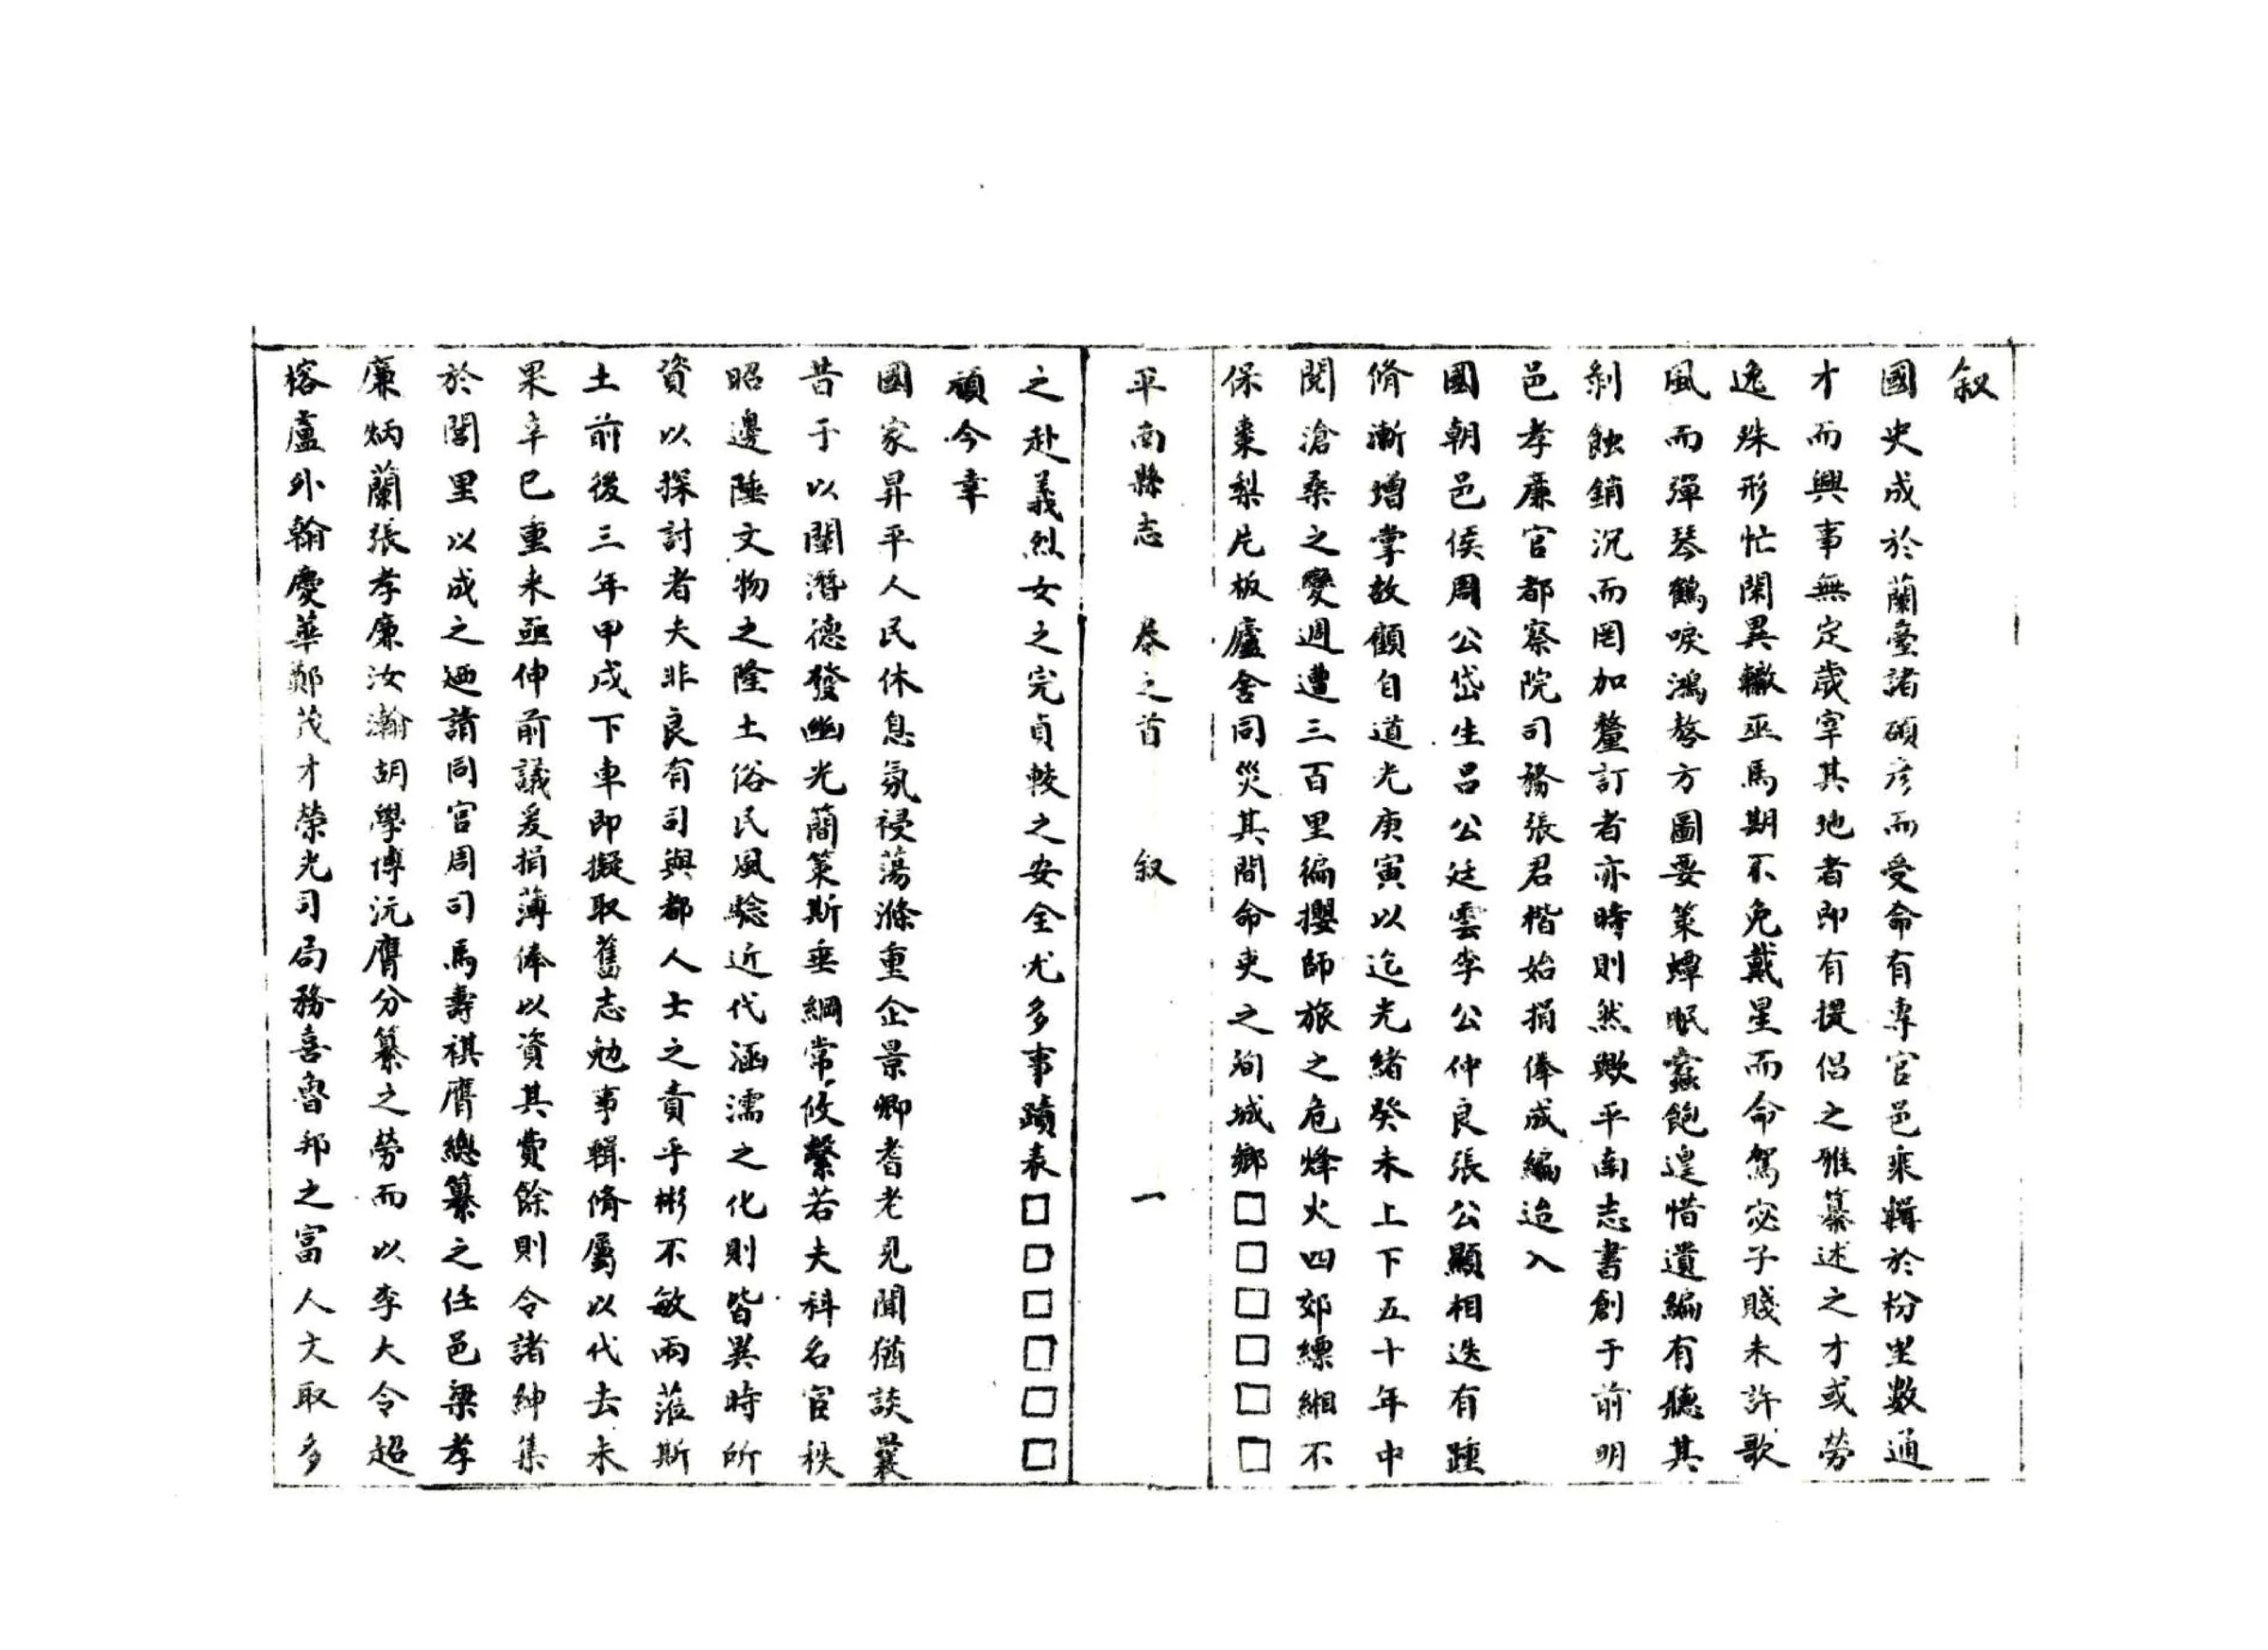 叙
國史成於蘭臺諸碩彦而受命有專官邑乘輯於枌里數通
才而興事無定歲宰其地者即有提倡之雅纂述之才或勞
逸殊形忙閑異轍巫馬期不免戴星而命駕宓子賤未許歌
風而彈琴鶴唳鴻嗸方圖要策蟫眠蠧飽遑惜遺編有聽其
剝蝕銷沉而罔加釐訂者亦時則然歟平南志書創于前明
邑孝廉官都察院司務張君楷始捐俸成編迨入
國朝邑侯周公岱生呂公廷雲李公仲良張公顯相迭有踵
脩漸增掌故顧自道光庚寅以迄光緒癸未上下五十年中
閱滄桑之變週遭三百里徧攖師旅之危烽火四郊縹緗不
保棗梨片板廬舍同災其間命吏之殉城鄉□□□□□□
平南縣志 卷之首 叙 一
之赴義烈女之完貞較之安全尤多事蹟表□□□□□□
頑今幸
國家昇平人民休息氛祲蕩滌重企景卿耆老見聞猶談曩
昔于以闡潛德發幽光簡策斯垂綱常攸繫若夫科名官秩
昭邊陲文物之隆土俗民風驗近代涵濡之化則皆異時所
資以探討者夫非良有司與都人士之責乎彬不敏兩蒞斯
土前後三年甲戌下車即擬取舊志勉事輯脩屬以代去未
果辛巳重来亟伸前議爰捐薄俸以資其費餘則令諸紳集
於閭里以成之廼請同官周司馬壽祺膺總纂之任邑梁孝
廉炳蘭張孝廉汝瀚胡學博沅膺分纂之勞而以李大令超
榕盧外翰慶華鄭茂才榮光司局務喜魯邦之富人文取多